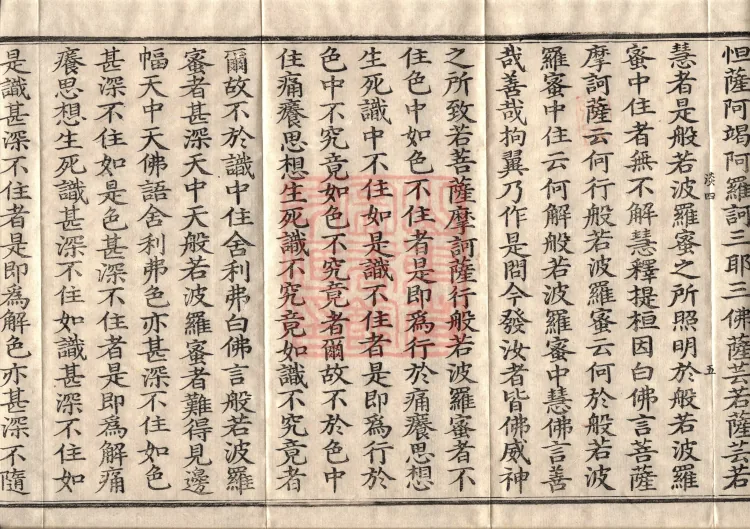 怛薩阿竭阿羅訶三耶三佛薩芸若薩芸若
慧者是般若波羅蜜之所照明於般若波羅
漠四
五
蜜中住者無不解慧釋提桓因白佛言菩薩
摩訶薩云何行般若波羅蜜云何於般若波
羅蜜中住云何解般若波羅蜜中慧佛言善
哉善哉拘翼乃作是問今發汝者皆佛威神
之所致若菩薩摩訶薩行般若波羅蜜者不
住色中如色不住者是即為行於痛癢思想
生死識中不住如是識不住者是即為行於
色中不究竟如色不究竟者爾故不於色中
住痛癢思想生死識不究竟如識不究竟者
爾故不於識中住舍利弗白佛言般若波羅
蜜者甚深天中天般若波羅蜜者難得見邊
幅天中天佛語舍利弗色亦甚深不住如色
甚深不住如是色甚深不住者是即為解痛
癢思想生死識甚深不住如識甚深不住如
是識甚深不住者是即為解色亦甚深不隨